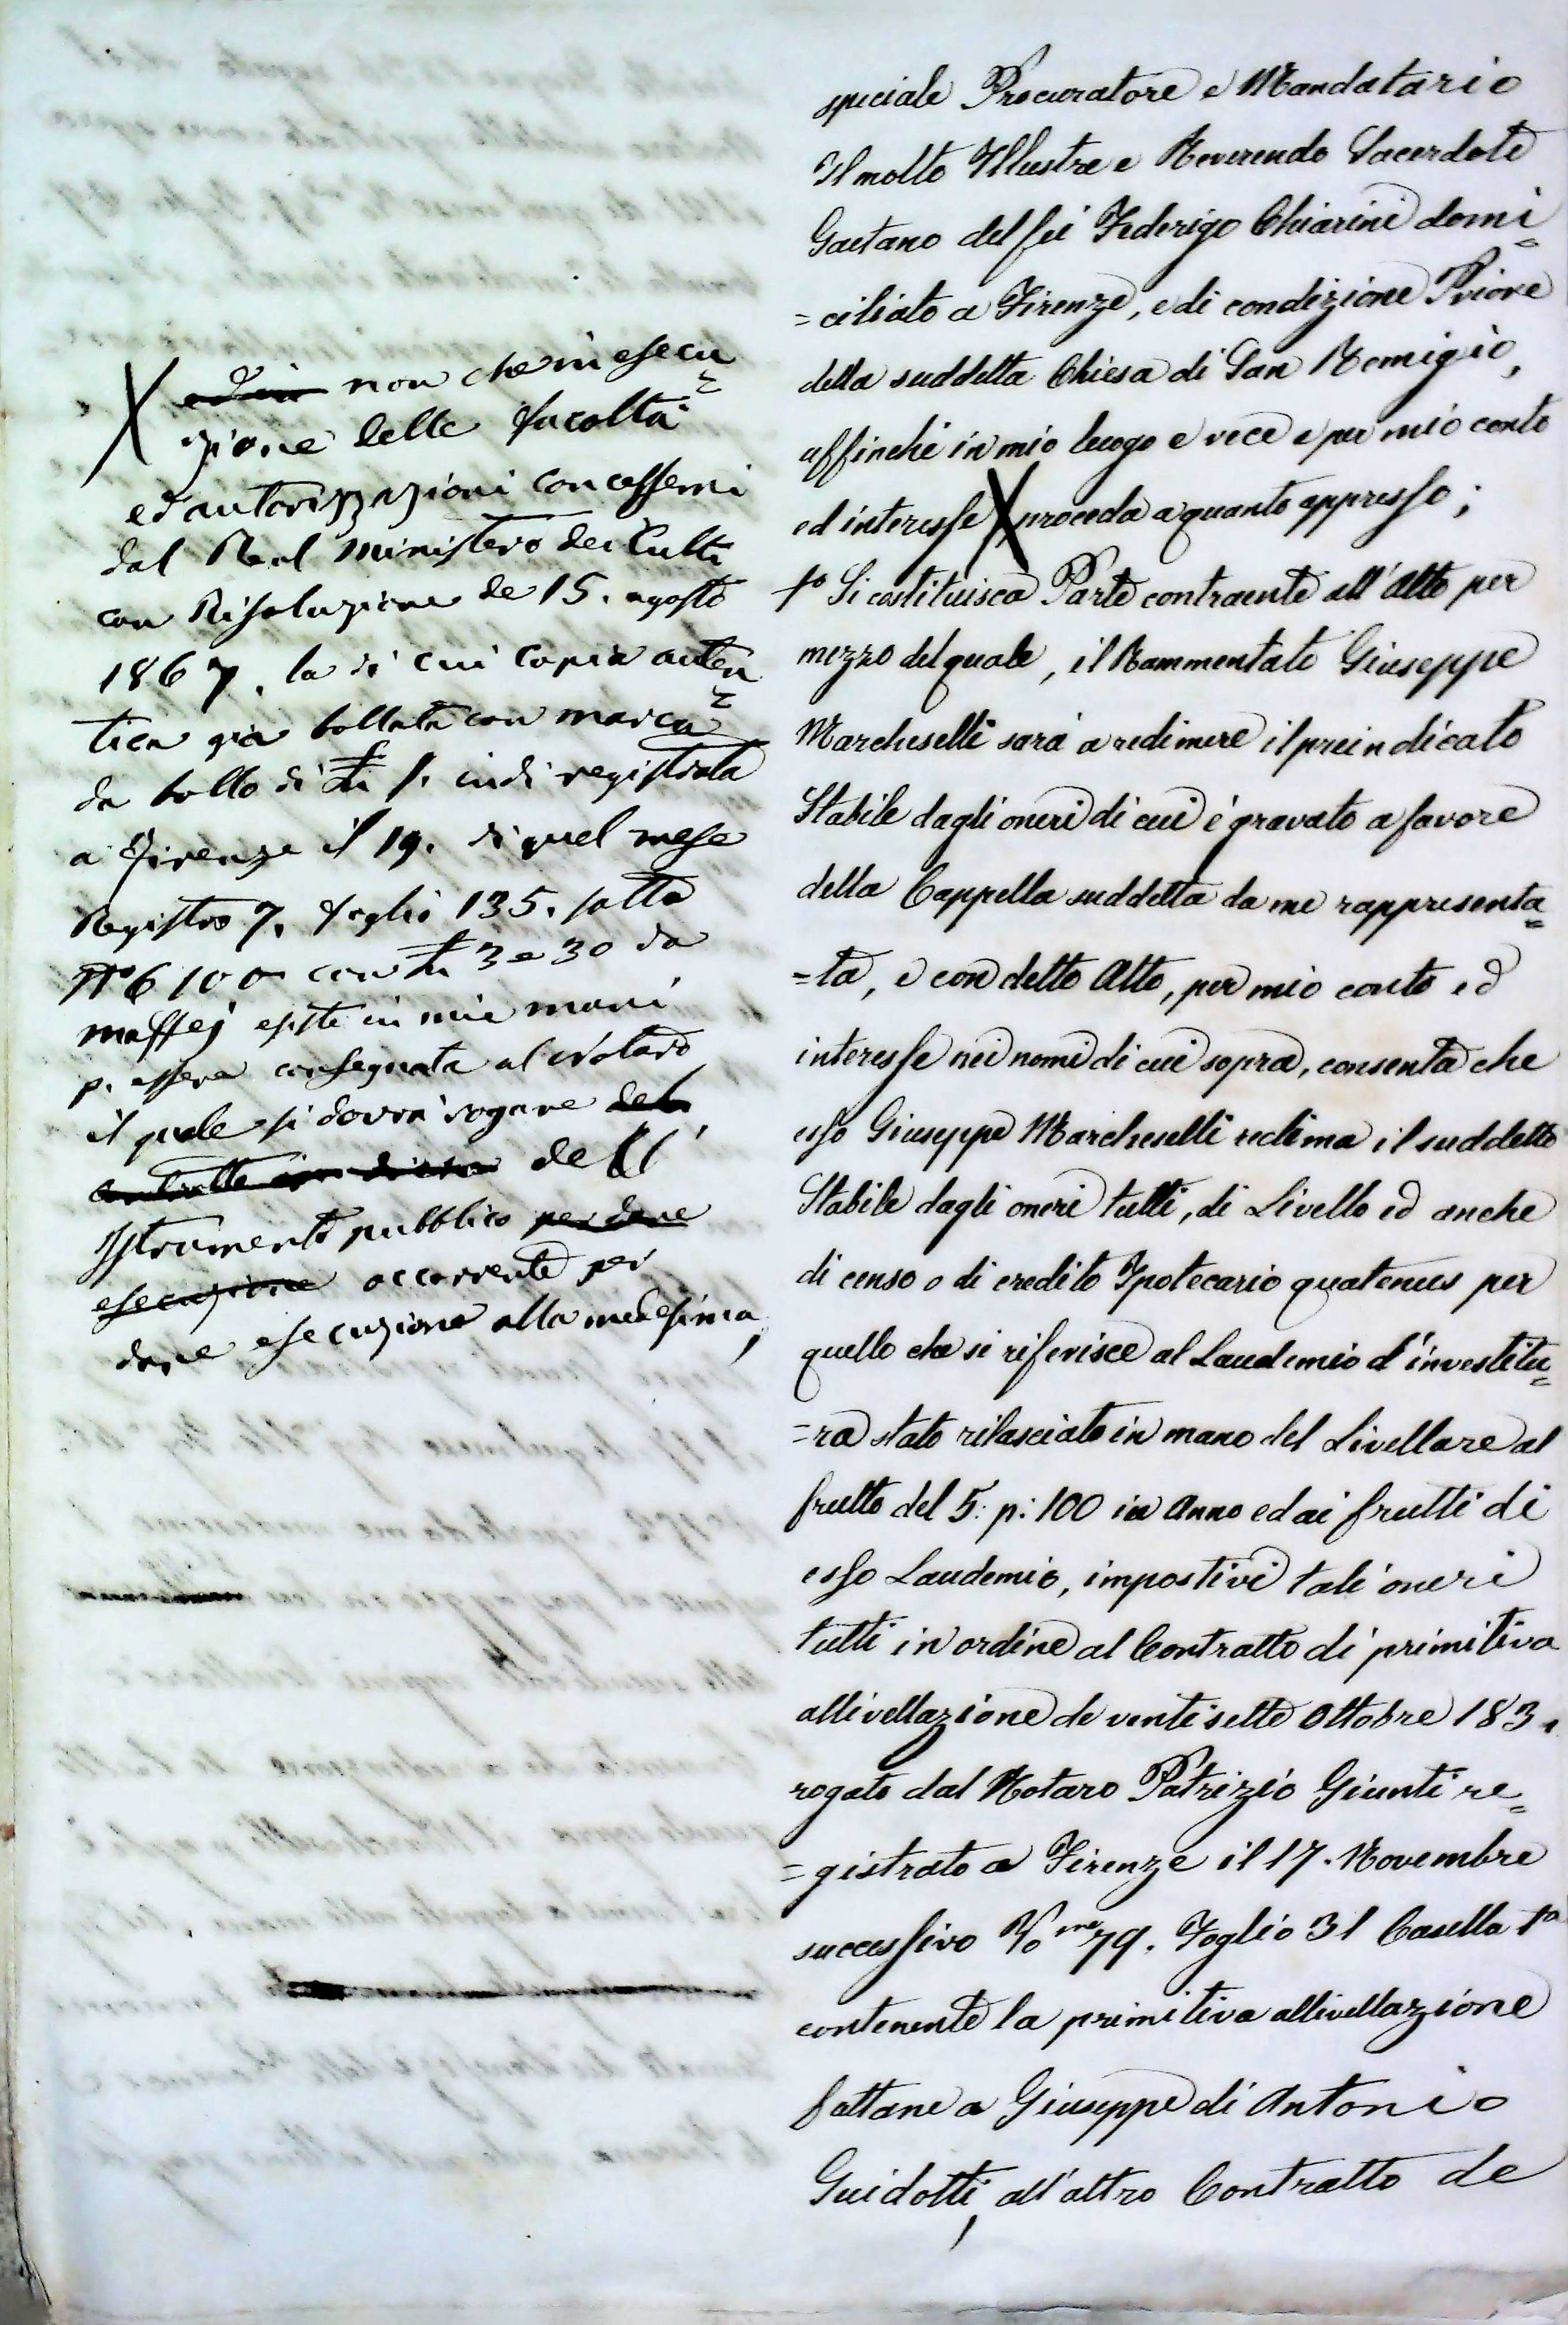 X non che in esecu=
zione delle facoltà
ed autorizzazioni concessemi
dal Real Ministero dei Culti
con Risoluzione de 15. agosto
1867. la di cui copia auten=
tica già bollata con marca
da bollo di £ 1. indi registrata
a Firenze il 19. di quel mese
Registro 7. foglio 135. sotto
N° 6100 con £ 3 e 30 da
Maffej esiste in mie mani
p. essere consegnata al Notaro
il quale si dovrà rogare del
contratto dell'
Istrumento pubblico per dare
esecuzione occorrente per
dare esecuzione alla medesima,
speciale Procuratore e Mandatario
Il molto Illustre e Reverendo Sacerdote
Gaetano del fu Federigo Chiarini domi=
=ciliato a Firenze, e di condizione Priore
della suddetta Chiesa di San Remigio,
affinchè in mio luogo e vece e per mio conto
ed interesse X proceda a quanto appresso;
1° Si costituisca Parte contraente all'Atto per
mezzo del quale, il Rammentato Giuseppe
Marcheselli sarà a redimere il preindicato
Stabile dagli oneri di cui è gravato a favore
della Cappella suddetta da me rappresenta=
=ta, e con detto Atto, per mio conto ed
interesse nei nomi di cui sopra, consenta che
esso Giuseppe Marcheselli redima il suddetto
Stabile dagli oneri tutti, di Livello ed anche
di censo o di credito Ipotecario quatenus per
quello che si riferisce al Laudemio d'investitu=
=ra stato rilasciato in mano del Livellare al
frutto del 5: p: 100 in Anno ed ai frutti di
esso Laudemio, impostivi tali oneri
tutti in ordine al Contratto di primitiva
allivellazione de ventisette Ottobre 183.
rogato dal Notaro Patrizio Giunti re=
=gistrato a Firenze il 17. Novembre
successivo Vo me 79. Foglio 31 Casella 1a
contenente la primitiva allivellazione
fattane a Giuseppe di Antonio
Guidotti, all'altro Contratto de